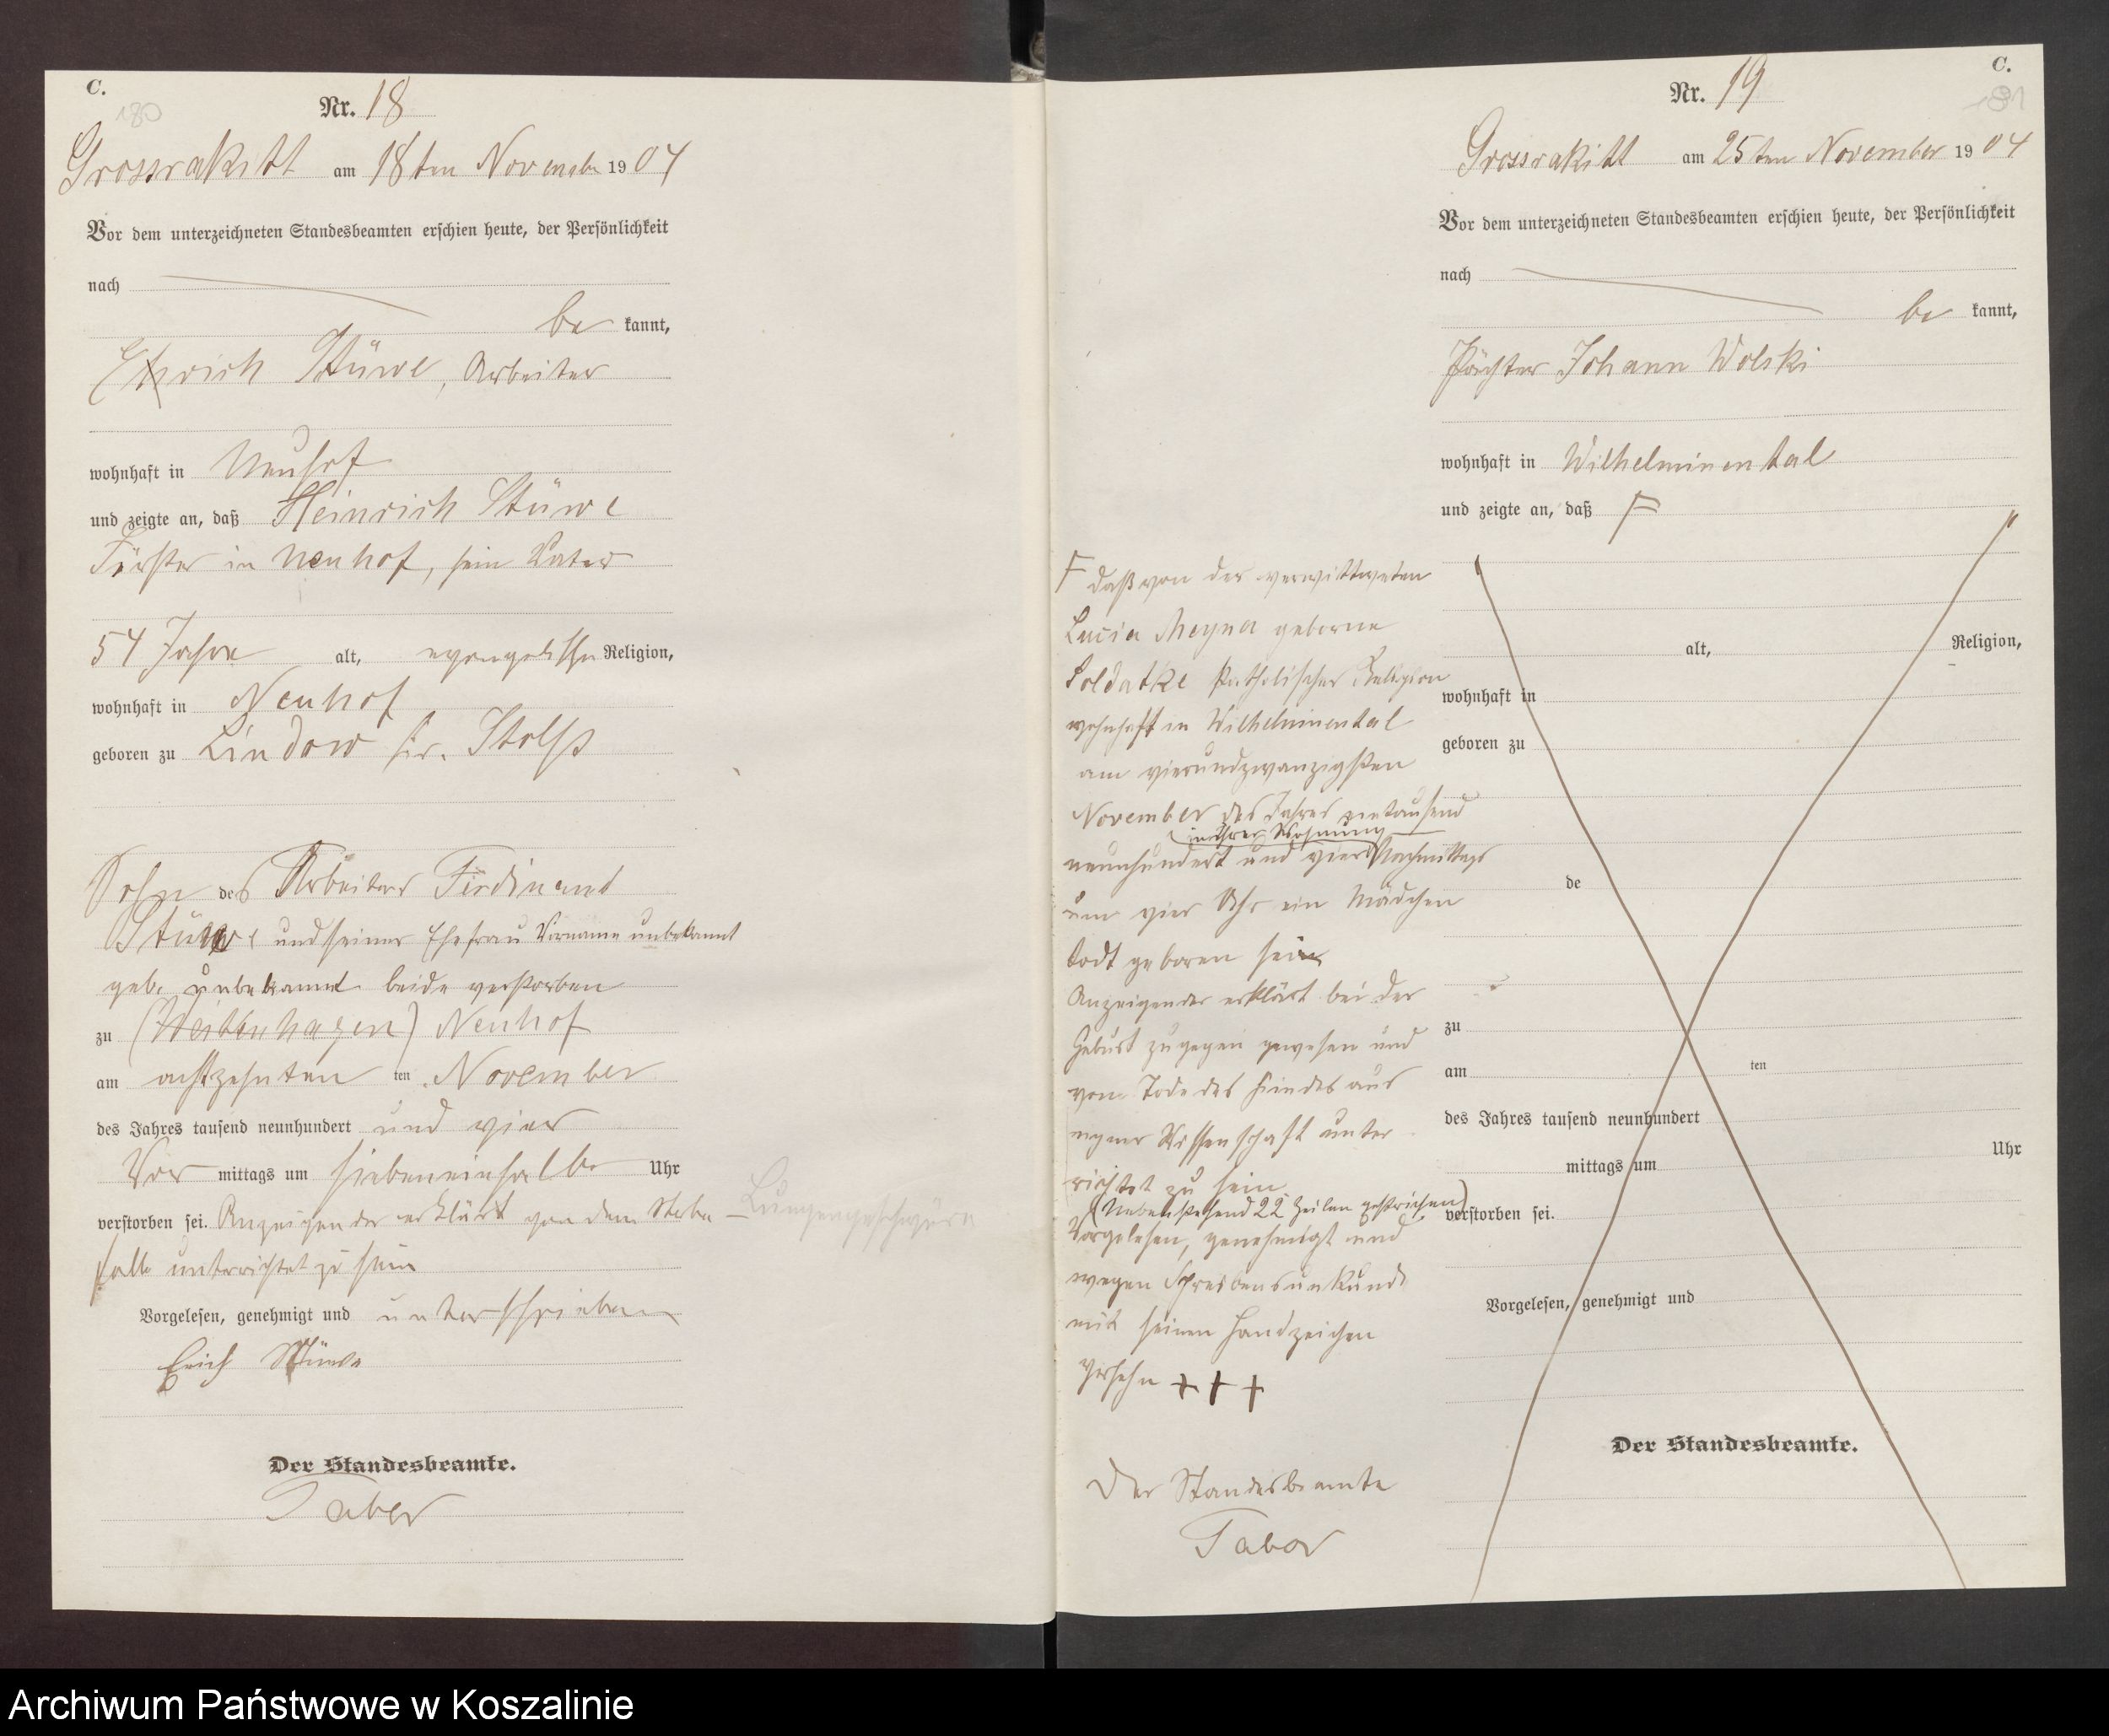 C.
180
Nr. 18
Grossrakitt am 18ten November 1904
Vor dem unterzeichneten Standesbeamten erschien heute, der Persönlichkeit
nach
be kannt,
Ehrich Stüwe, Arbeiter
wohnhaft in Neuhof
und zeigte an, daß Heinrich Stüwe
Förster in Neuhof, sein Vater
54 Jahre alt, evangelischer Religion,
wohnhaft in Neuhof
geboren zu Lindow Kr. Stolp
Sohn des Arbeiters Ferdinant
Stüwe und seiner Ehefrau Vorname unbekannt
geb. unbekannt beide verstorben
zu (Weitenhagen) Neuhof
am achtzehnten ten November
des Jahres tausend neunhundert und vier
Vor mittags um siebeneinhalb Uhr
verstorben sei. Anzeigender erklärt von dem Sterbe
falle unterrichtet zu sein
Lungengeschwüre
Vorgelesen, genehmigt und unterschrieben
Erich Stüwe
Der Standesbeamte.
Tabor
C.
181
Nr. 19
Grossrakitt am 25ten November 1904
Vor dem unterzeichneten Standesbeamten erschien heute, der Persönlichkeit
nach
be kannt,
Pächter Johann Wolski
wohnhaft in Wilhelminental
und zeigte an, daß F
F daß von der verwittweten
Lucia Meyna geborne
Soldatke katholischer Religion
wohnhaft in Wilhelminental
am vierundzwanzigsten
November des Jahres eintausend
in ihrer Wohnung
neunhundert und vier Nachmittags
um vier Uhr ein Mädchen
todt geboren sei
Anzeigender erklärt bei der
Geburt zugegen gewesen und
vom Tode des Kindes aus
eigner Wissenschaft unter
richtet zu sein
(Nebenstehend 22 Zeilen gestrichen)
Vorgelesen, genehmigt und
wegen Schreibensunkunde
mit seinen Handzeichen
versehn + + +
Der Standesbeamte
Tabor
alt, Religion,
wohnhaft in
geboren zu
de
zu
am ten
des Jahres tausend neunhundert
mittags um Uhr
verstorben sei.
Vorgelesen, genehmigt und
Der Standesbeamte.
Archiwum Państwowe w Koszalinie